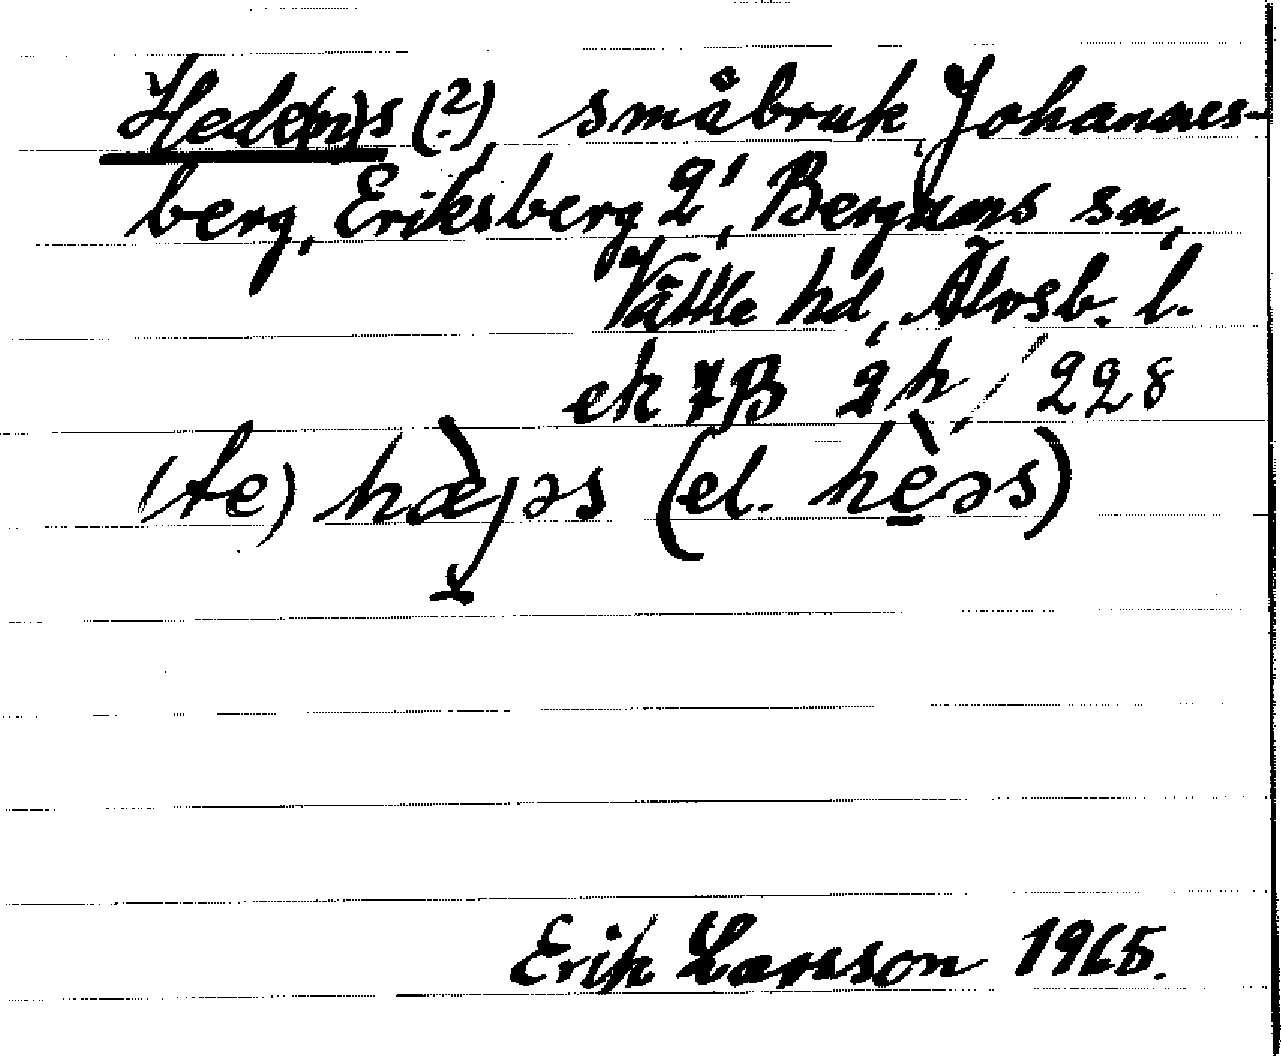 Hede(n)s (?), småbruk, Johannes-
berg, Eriksberg 2¹, Bergums sn,
Vättle hd, Älvsb. l.
ek 7B 2h/228
(te) hæ̀jəs (el. hèəs)
Erik Larsson 1965.